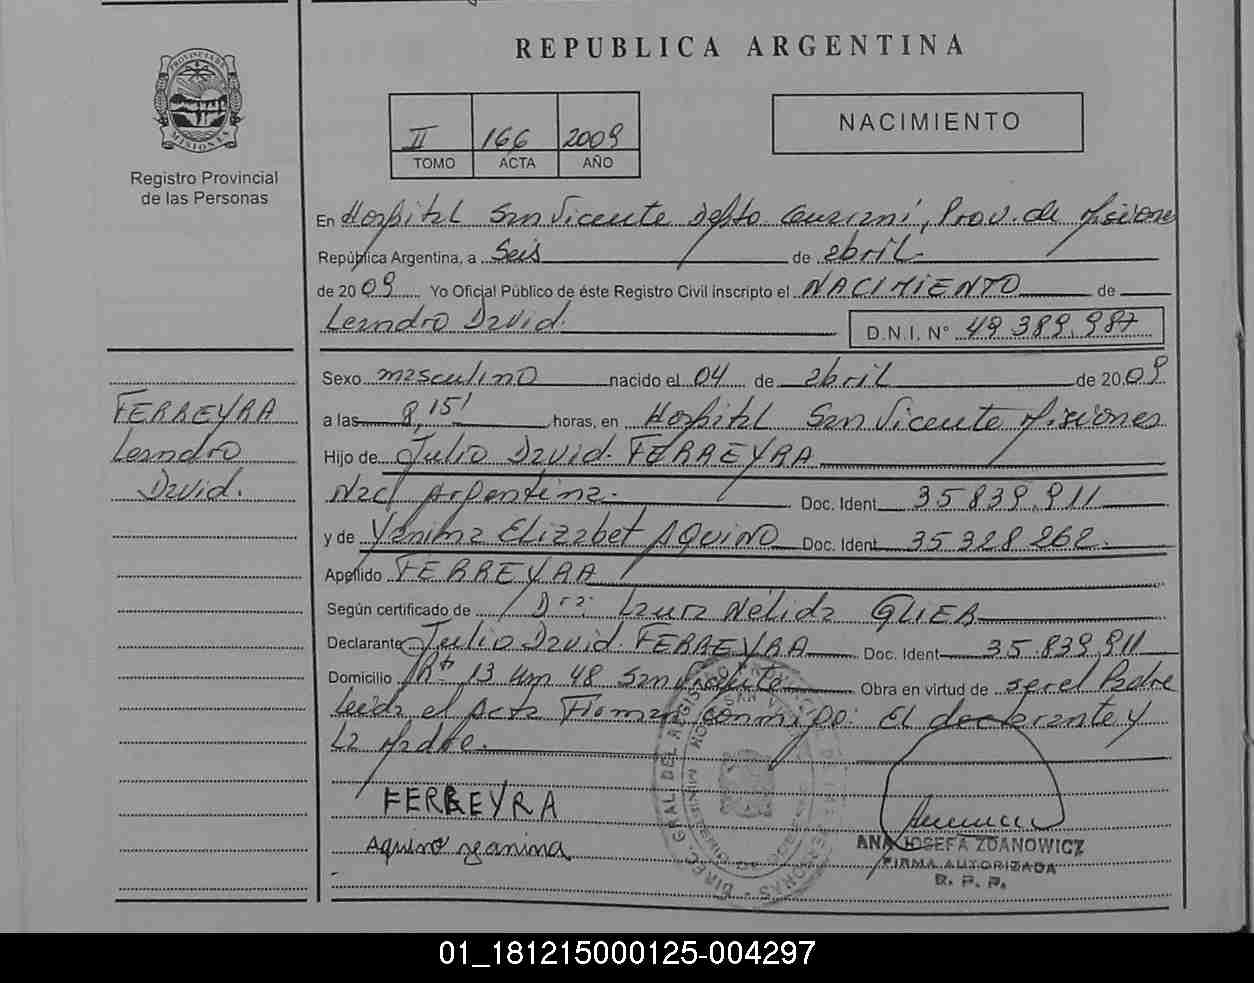 REPUBLICA ARGENTINA
PROVINCIA DE MISIONES
Registro Provincial
de las Personas
II 166 2009
TOMO ACTA AÑO
NACIMIENTO
En Hospital San Vicente Depto. Guarani, Prov. de Misiones
República Argentina, a Seis de abril
de 2009 Yo Oficial Público de éste Registro Civil inscripto el NACIMIENTO de
Leandro David. D.N.I. N° 49 389.987
Sexo masculino nacido el 04 de abril de 2009
a las 8,15' horas, en Hospital San Vicente Misiones
Hijo de Julio David FERREYRA
Nac. Argentina. Doc. Ident 35 839.911
y de Yanina Elizabet AQUINO Doc. Ident 35 328 262.
Apellido FERREYRA
Según certificado de Dra. Laura Nélida GLIER
Declarante Julio David FERREYRA Doc. Ident 35.839.911
Domicilio Rta 13 Km 48 San Vicente Obra en virtud de ser el Padre
Leida el Acta Firman conmigo: El declarante y
La Madre.
FERREYRA
Leandro
David.
FERREYRA
Aquino yanina
ANA JOSEFA ZDANOWICZ
FIRMA AUTORIZADA
R. P. P.
01_181215000125-004297